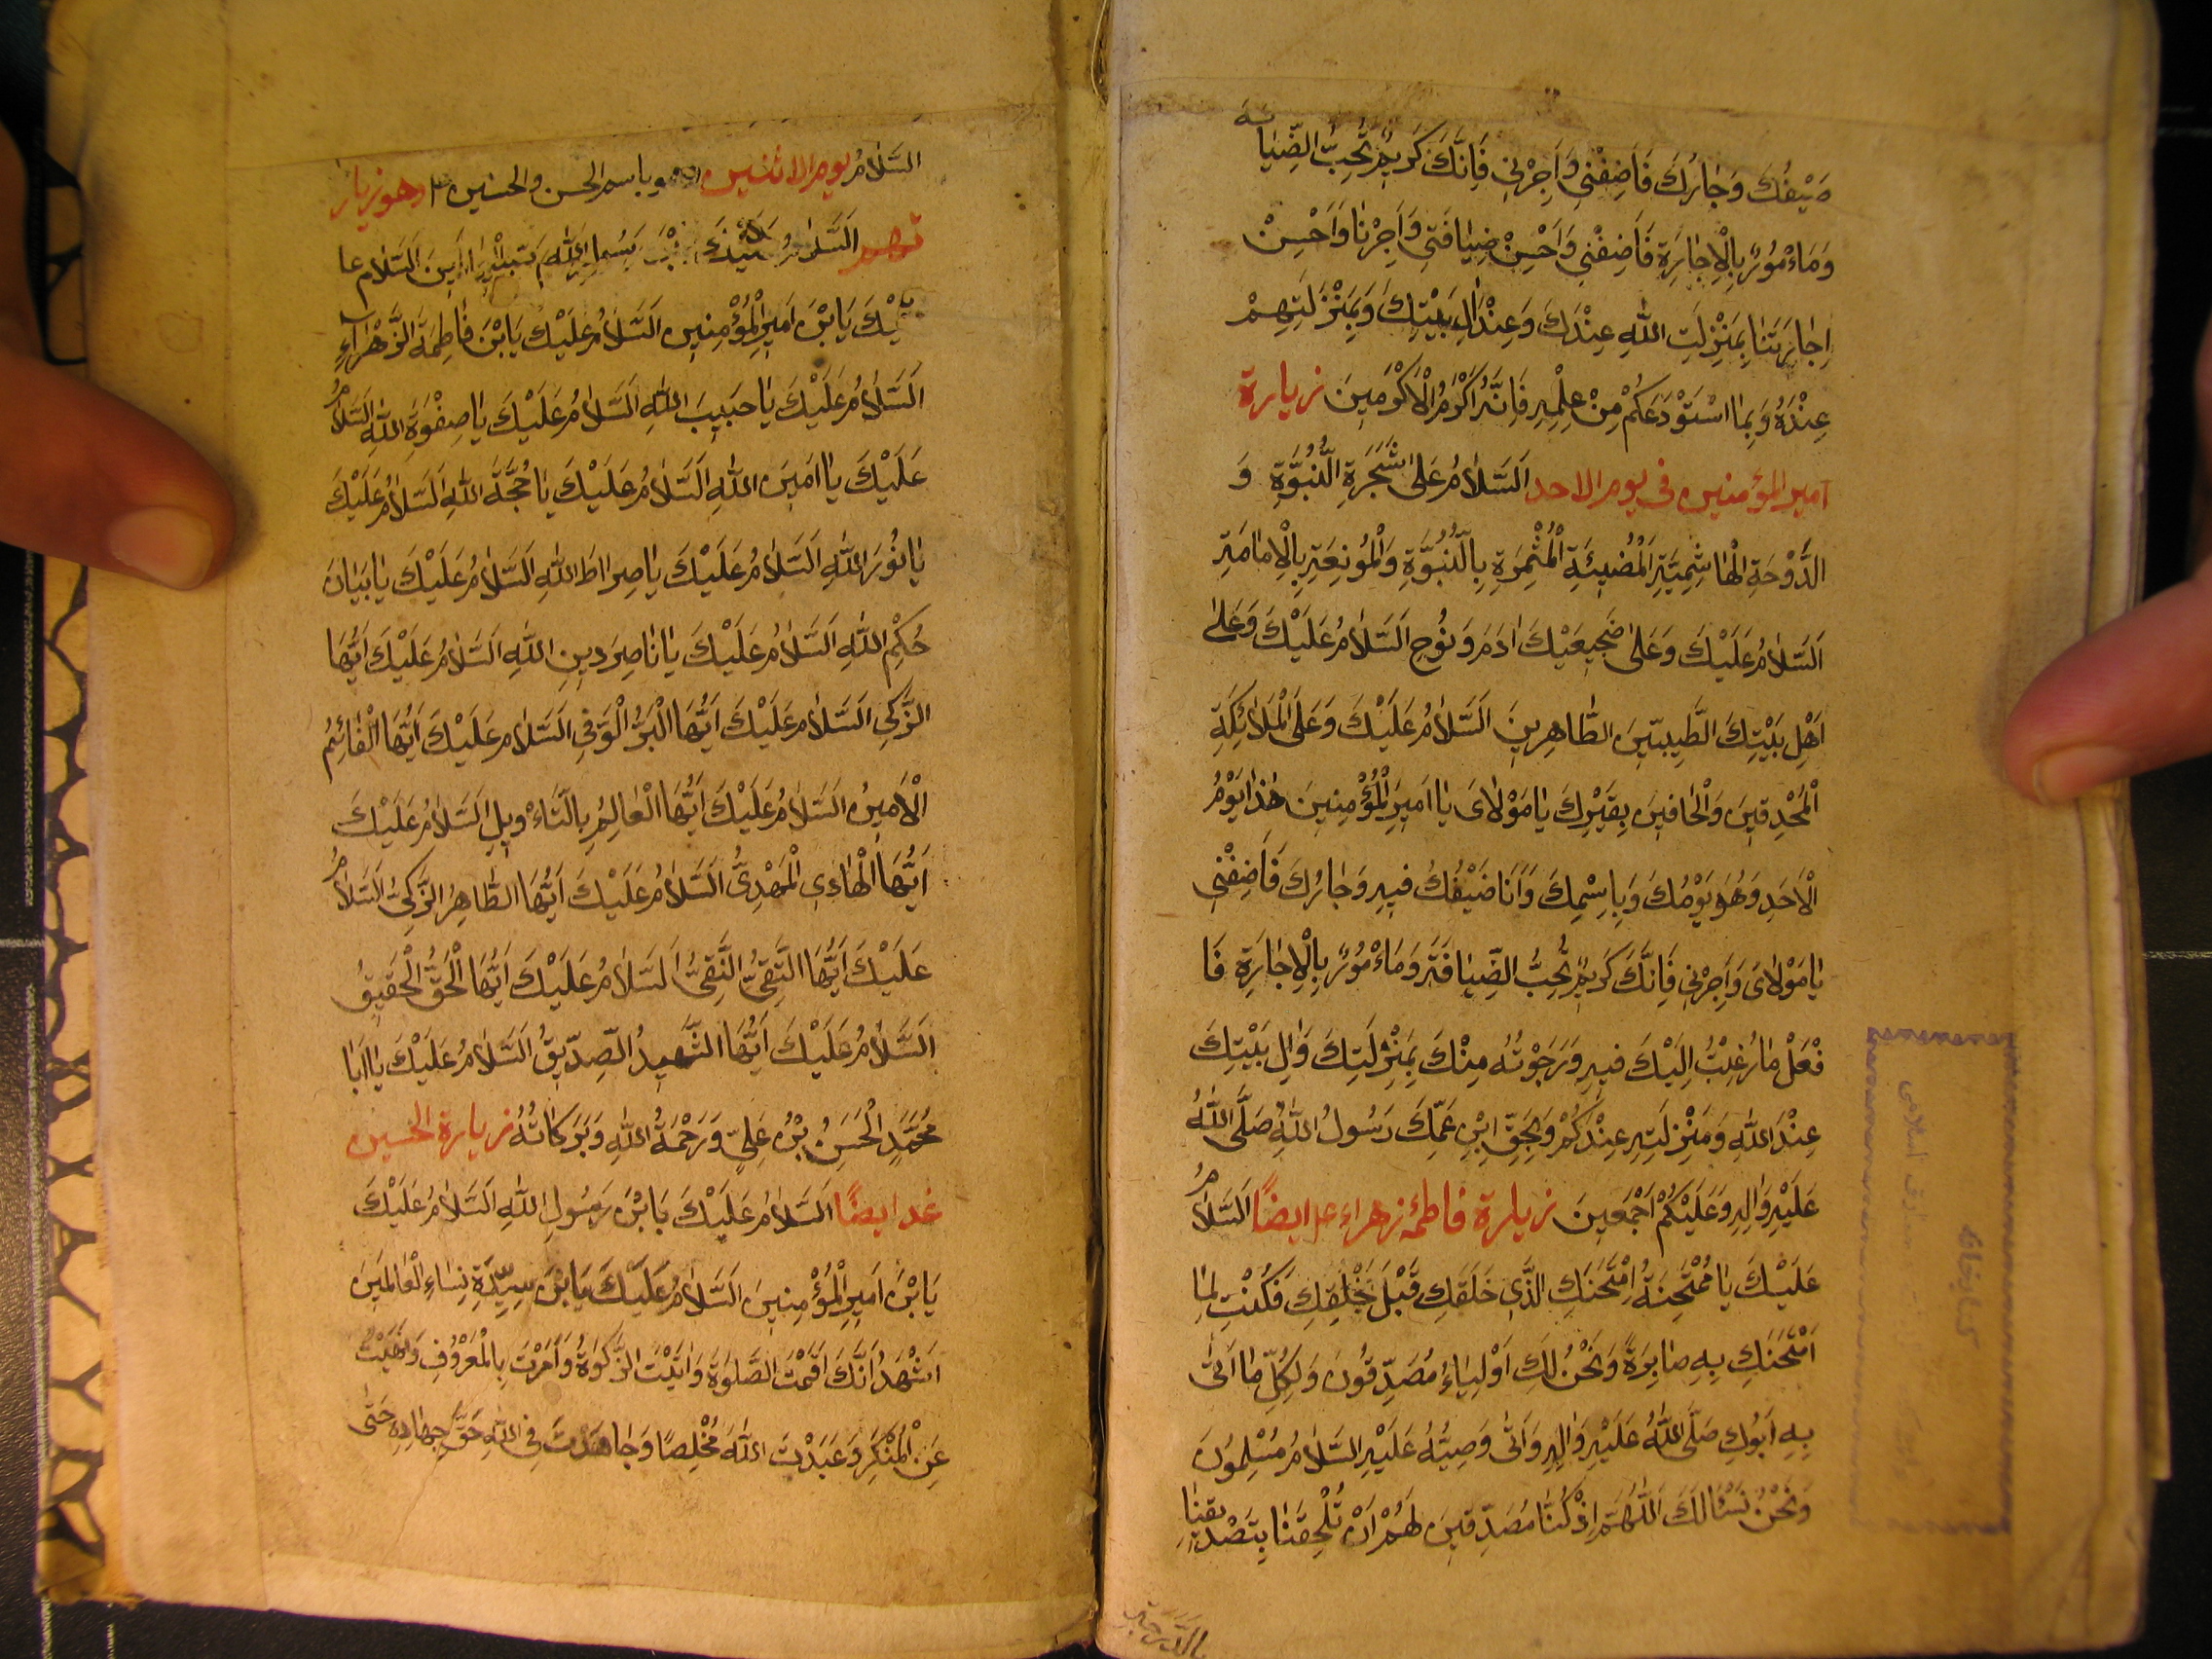 ضَيْفُكَ وَجٰارُكَ فَاَضِفْنٖي وَاَجِرْنٖي فَاِنَّكَ كَرٖيمٌ تُحِبُّ الضِّيٰافَةَ
وَمَاْمُوْرٌ بِالْاِجٰارَةِ فَاَضِفْنٖي وَاَحْسِنْ ضِيٰافَتٖي وَاَجِرْنٰا وَاَحْسِنْ
اِجٰارَتَنٰا بِمَنْزِلَتِ اللّٰهِ عِنْدَكَ وَعِنْدَ اٰلِ بَيْتِكَ وَبِمَنْزِلَتِهِمْ
عِنْدَهُ وَبِمٰا اسْتَوْدَعَكُمْ مِنْ عِلْمِهِ فَاِنَّهُ اَكْرَمُ الْاَكْرَمٖينَ زيارة
امير المؤمنين في يوم الاحد اَلسَّلٰامُ عَلىٰ شَجَرَةِ النُّبُوَّةِ وَ
الدَّوْحَةِ الْهٰاشِمِيَّةِ الْمُضٖيئَةِ الْمُثْمِرَةِ بِالنُّبُوَّةِ وَالْمُونِعَةِ بِالْاِمٰامَةِ
اَلسَّلٰامُ عَلَيْكَ وَعَلىٰ ضَجٖيعَيْكَ اٰدَمَ وَنُوحٍ اَلسَّلٰامُ عَلَيْكَ وَعَلىٰ
اَهْلِ بَيْتِكَ الطَّيِّبٖينَ الطّٰاهِرٖينَ اَلسَّلٰامُ عَلَيْكَ وَعَلَى الْمَلٰائِكَةِ
الْمُحْدِقٖينَ وَالْحٰافّٖينَ بِقَبْرِكَ يٰا مَوْلٰايَ يٰا اَمٖيرَ الْمُؤْمِنٖينَ هٰذٰا يَوْمُ
الْاَحَدِ وَهُوَ يَوْمُكَ وَبِاسْمِكَ وَاَنَا ضَيْفُكَ فٖيهِ وَجٰارُكَ فَاَضِفْنٖي
يٰا مَوْلٰايَ وَاَجِرْنٖي فَاِنَّكَ كَرٖيمٌ تُحِبُّ الضِّيٰافَةَ وَمَاْمُوْرٌ بِالْاِجٰارَةِ فَا
فْعَلْ مٰا رَغِبْتُ اِلَيْكَ فٖيهِ وَرَجَوْتُهُ مِنْكَ بِمَنْزِلَتِكَ وَاٰلِ بَيْتِكَ
عِنْدَ اللّٰهِ وَمَنْزِلَتِهِ عِنْدَكُمْ وَبِحَقِّ ابْنِ عَمِّكَ رَسُولُ اللّٰهِ صَلَّى اللّٰهُ
عَلَيْهِ وَاٰلِهِ وَعَلَيْكُمْ اَجْمَعٖينَ زيارة فاطمهٔ زهراء ع ايضًا اَلسَّلٰامُ
عَلَيْكَ يٰا مُمْتَحَنَةُ اِمْتَحَنَكِ الَّذٖي خَلَقَكِ قَبْلَ خَلْقِكِ فَكُنْتِ لِمَا
امْتَحَنَكِ بِهِ صٰابِرَةً وَنَحْنُ لَكِ اَوْلِيٰاءُ مُصَدِّقُونَ وَلِكُلِّ مٰا اَتىٰ
بِهِ اَبُوكِ صَلَّى اللّٰهُ عَلَيْهِ وَاٰلِهِ وَاَتىٰ وَصِيُّهُ عَلَيْهِ السَّلٰامُ مُسْلِمُونَ
وَنَحْنُ نَسْئَالُكَ اللّٰهُمَّ اِذْ كُنّٰا مُصَدِّقٖينَ لَهُمْ اَنْ تُلْحِقَنٰا بِتَصْدٖيقِنٰا
بالدرجة
السَّلٰامُ يوم الاثنين وهو باسم الحسن والحسين ع وهو زيار
تهم اَلسَّلٰامُ عَلَيْكَ يَابْنَ رَسُولِ اللّٰهِ اَلسَّلٰام عا
يْكَ يَابْنَ اَمٖيرِ الْمُؤْمِنٖينَ اَلسَّلٰامُ عَلَيْكَ يَابْنَ فٰاطِمَةَ الزَّهْرٰاءِ
اَلسَّلٰامُ عَلَيْكَ يٰا حَبٖيبَ اللّٰهِ اَلسَّلٰامُ عَلَيْكَ يٰا صِفْوَةَ اللّٰهِ اَلسَّلٰامُ
عَلَيْكَ يٰا اَمٖينَ اللّٰهِ اَلسَّلٰامُ عَلَيْكَ يٰا حُجَّةَ اللّٰهِ اَلسَّلٰامُ عَلَيْكَ
يٰا نُورَ اللّٰهِ اَلسَّلٰامُ عَلَيْكَ يٰا صِرٰاطَ اللّٰهِ اَلسَّلٰامُ عَلَيْكَ يٰا بَيٰانَ
حُكْمِ اللّٰهِ اَلسَّلٰامُ عَلَيْكَ يٰا نٰاصِرَ دٖينِ اللّٰهِ اَلسَّلٰامُ عَلَيْكَ اَيُّهَا
الزَّكِي اَلسَّلٰامُ عَلَيْكَ اَيُّهَا الْبَرُّ الْوَفٖي اَلسَّلٰامُ عَلَيْكَ اَيُّهَا الْقٰائِمُ
الْاَمٖينُ اَلسَّلٰامُ عَلَيْكَ اَيُّهَا الْعٰالِمُ بِالتَّاْوٖيلِ اَلسَّلٰامُ عَلَيْكَ
اَيُّهَا الْهٰادِي الْمَهْدِيُّ اَلسَّلٰامُ عَلَيْكَ اَيُّهَا الطّٰاهِرُ الزَّكِيُّ اَلسَّلٰامُ
عَلَيْكَ اَيُّهَا التَّقِيُّ النَّقِيُّ اَلسَّلٰامُ عَلَيْكَ اَيُّهَا الْحَقُّ الْحَقٖيقُ
اَلسَّلٰامُ عَلَيْكَ اَيُّهَا الشَّهٖيدُ الصِّدّٖيقُ اَلسَّلٰامُ عَلَيْكَ يٰا اَبٰا
مُحَمَّدٍ الْحَسَنُ بْنُ عَلِيٍّ وَرَحْمَةُ اللّٰهِ وَبَرَكٰاتُهُ زيارة الحسين
غد ايضًا اَلسَّلٰامُ عَلَيْكَ يَابْنَ رَسُولِ اللّٰهِ اَلسَّلٰامُ عَلَيْكَ
يَابْنَ اَمٖيرِ الْمُؤْمِنٖينَ اَلسَّلٰامُ عَلَيْكَ يَابْنَ سَيِّدَةِ نِسٰاءِ الْعٰالَمٖينَ
اَشْهَدُ اَنَّكَ اَقَمْتَ الصَّلٰوةَ وَاٰتَيْتَ الزَّكٰوةَ وَاَمَرْتَ بِالْمَعْرُوفِ وَنَهَيْتَ
عَنِ الْمُنْكَرِ وَعَبَدْتَ اللّٰهَ مُخْلِصًا وَجٰاهَدْتَ فِي اللّٰهِ حَقَّ جِهٰادِهِ حَتّٰى